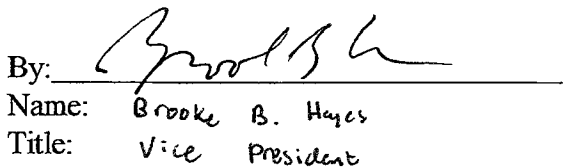 By:
Name: Brooke B. Hayes
Title: Vice President